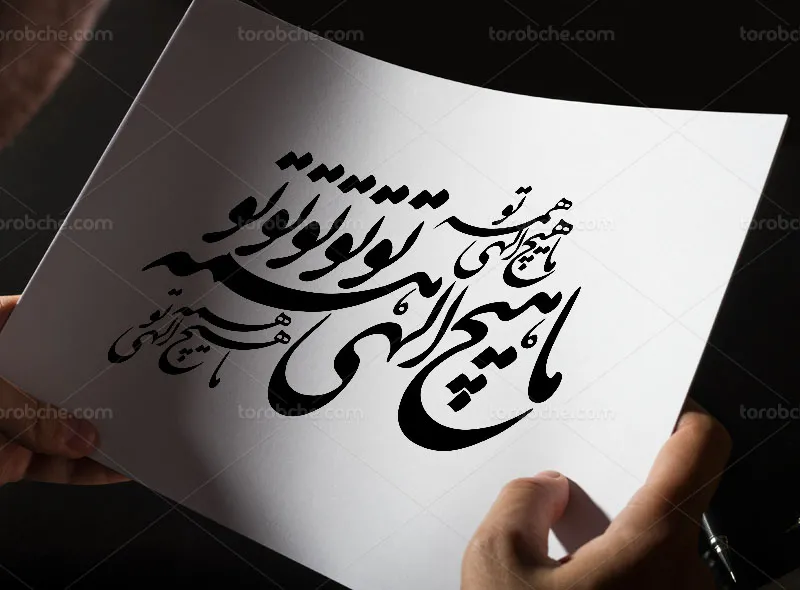 torobche.com torobche.com torobche.com torobche.com
همه تو
ما هیچ الهی
تو تو تو تو تو
ما هیچ الهی همه
torobche.com torobche.com torobche.com torobche.com
ما هیچ الهی همه تو
torobche.com torobche.com torobche.com torobche.com